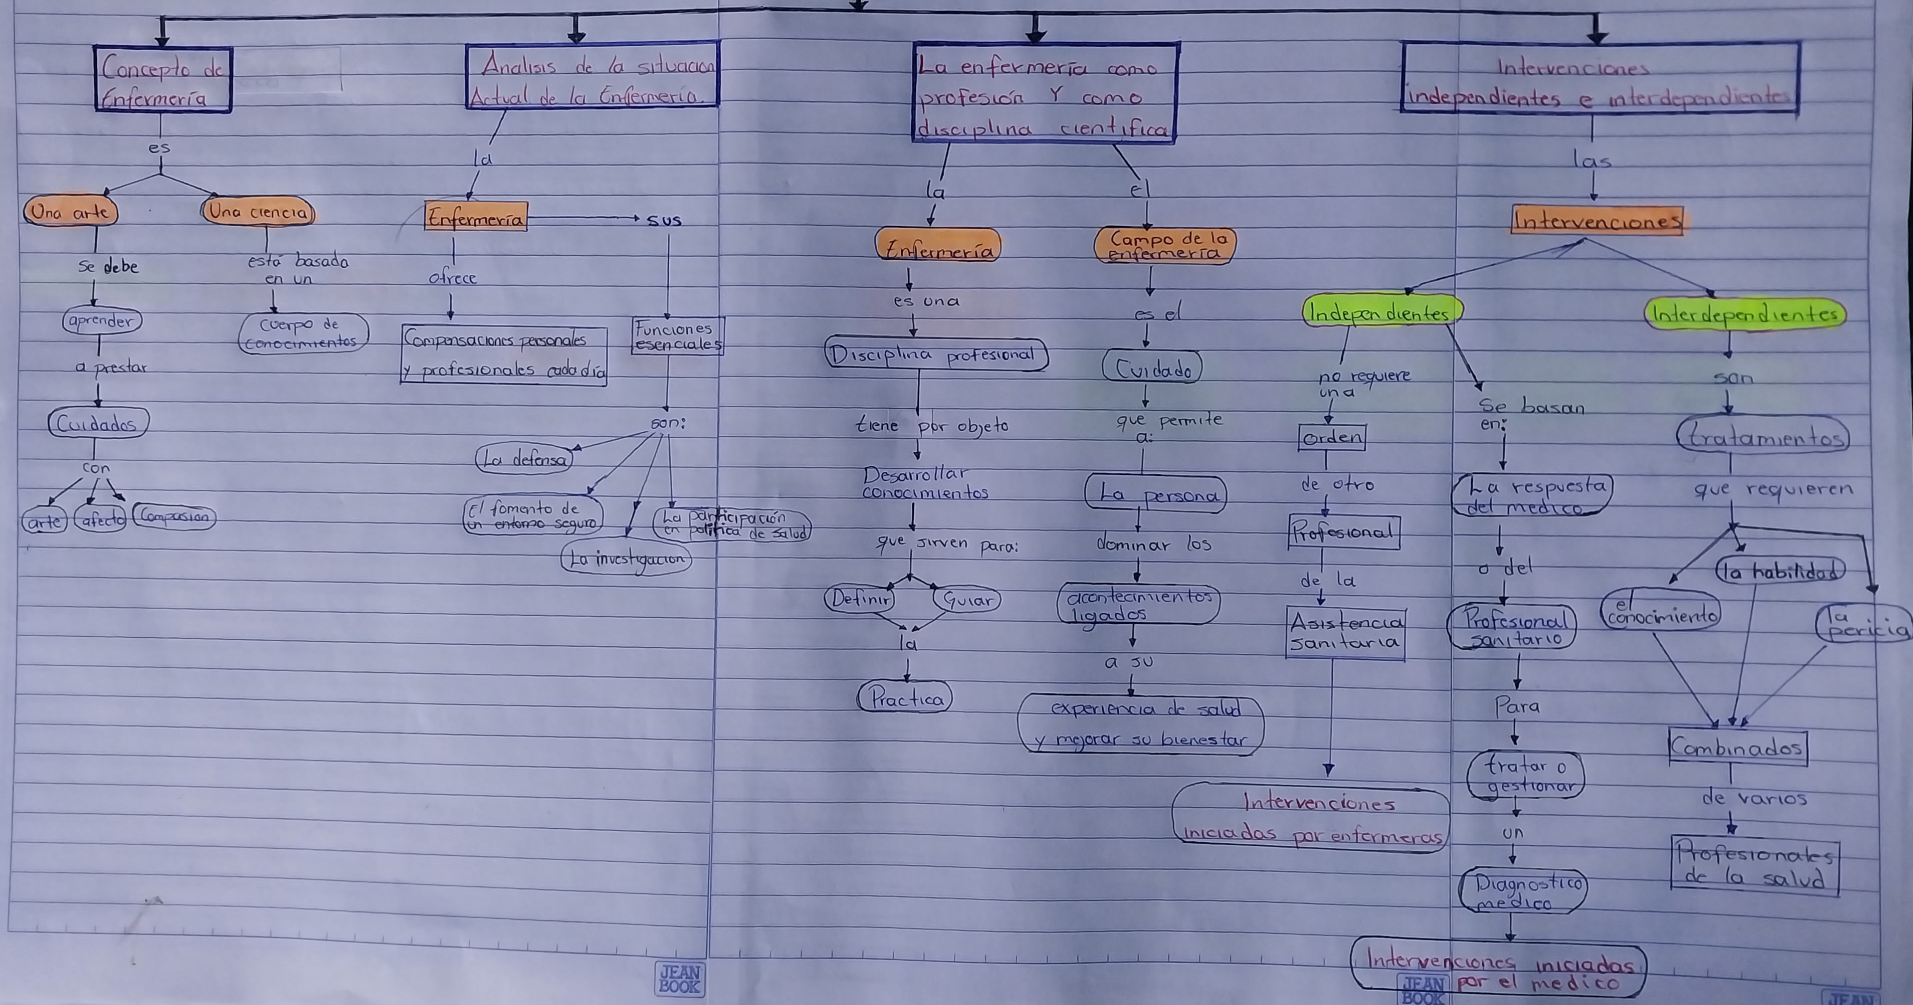 Concepto de
Enfermería
es
Una arte
Una ciencia
se debe
aprender
a prestar
Cuidados
con
arte
afecto
Compasion
está basada
en un
cuerpo de
conocimientos
Analisis de la situacion
Actual de la Enfermeria.
la
Enfermería
sus
ofrece
Compensaciones personales
y profesionales cada día
Funciones
esenciales
son:
La defensa
El fomento de
un entorno seguro
La investigacion
La participación
en política de salud
La enfermería como
profesión Y como
disciplina cientifica
la
Enfermería
es una
Disciplina profesional
tiene por objeto
Desarrollar
conocimientos
que sirven para:
Definir
Guiar
la
Practica
el
Campo de la
enfermería
es el
Cuidado
que permite
a:
La persona
dominar los
acontecimientos
ligados
a su
experiencia de salud
y mejorar su bienestar
Intervenciones
independientes e interdependientes
las
Intervenciones
Independientes
no requiere
una
orden
de otro
Profesional
de la
Asistencia
sanitaria
Intervenciones
iniciadas por enfermeras
se basan
en:
La respuesta
del medico
o del
Profesional
sanitario
Para
tratar o
gestionar
un
Diagnostico
medico
Intervenciones iniciadas
por el medico
Interdependientes
son
tratamientos
que requieren
el
conocimiento
la habilidad
la
pericia
Combinados
de varios
Profesionales
de la salud
JEAN
BOOK
JEAN
BOOK
JEAN